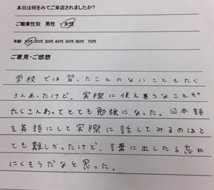 本日は何をみてご来店されましたか?
ご職業性別 男性 ・ 女性
年齢 10代 20代 30代 40代 50代 60代 70代
ご意見・ご感想
学校では習ったことのないこともたく
さんあったけど、実際に使えそうなことが
たくさんあってとても勉強になった。日本語
を英語にして実際に話してみるのはとて
も難しかったけど、言葉に出したら忘れ
にくそうだなと思った。